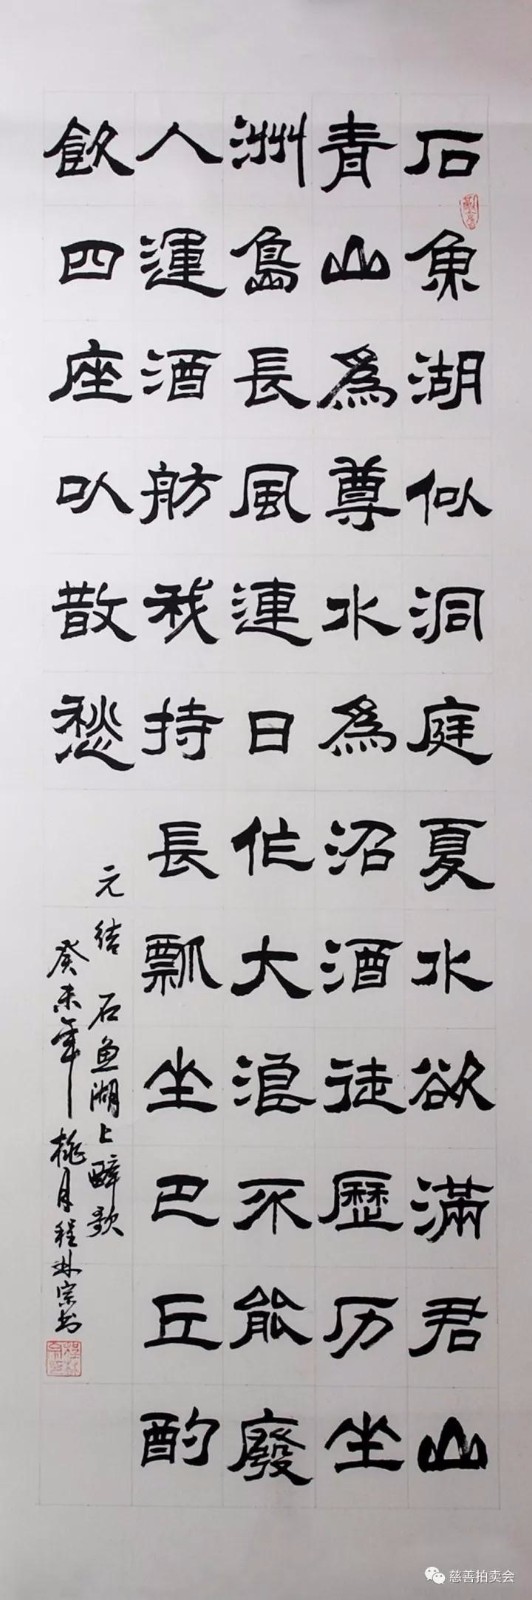 石魚湖似洞庭夏水欲滿君山
青山爲尊水爲沼酒徒歷历坐
洲島長風連日作大浪不能廢
人運酒舫我持長瓢坐巴丘酌
飲四座以散愁
元结 石鱼湖上醉歌
癸未年桃月程林宗书
慈善拍卖会